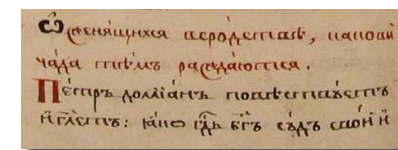 Ѿ женѧщихсѧ веро́дствѣ, и а́новы
ча́да тѣ́мъ раждаютсѧ.
Пе́тръ домїа́нъ повѣствꙋ́етъ
и҆ гл҃етъ: ꙗ҆́кѡ гдⷭ҇ь бг҃ъ сꙋ́дъ сво́й и҆